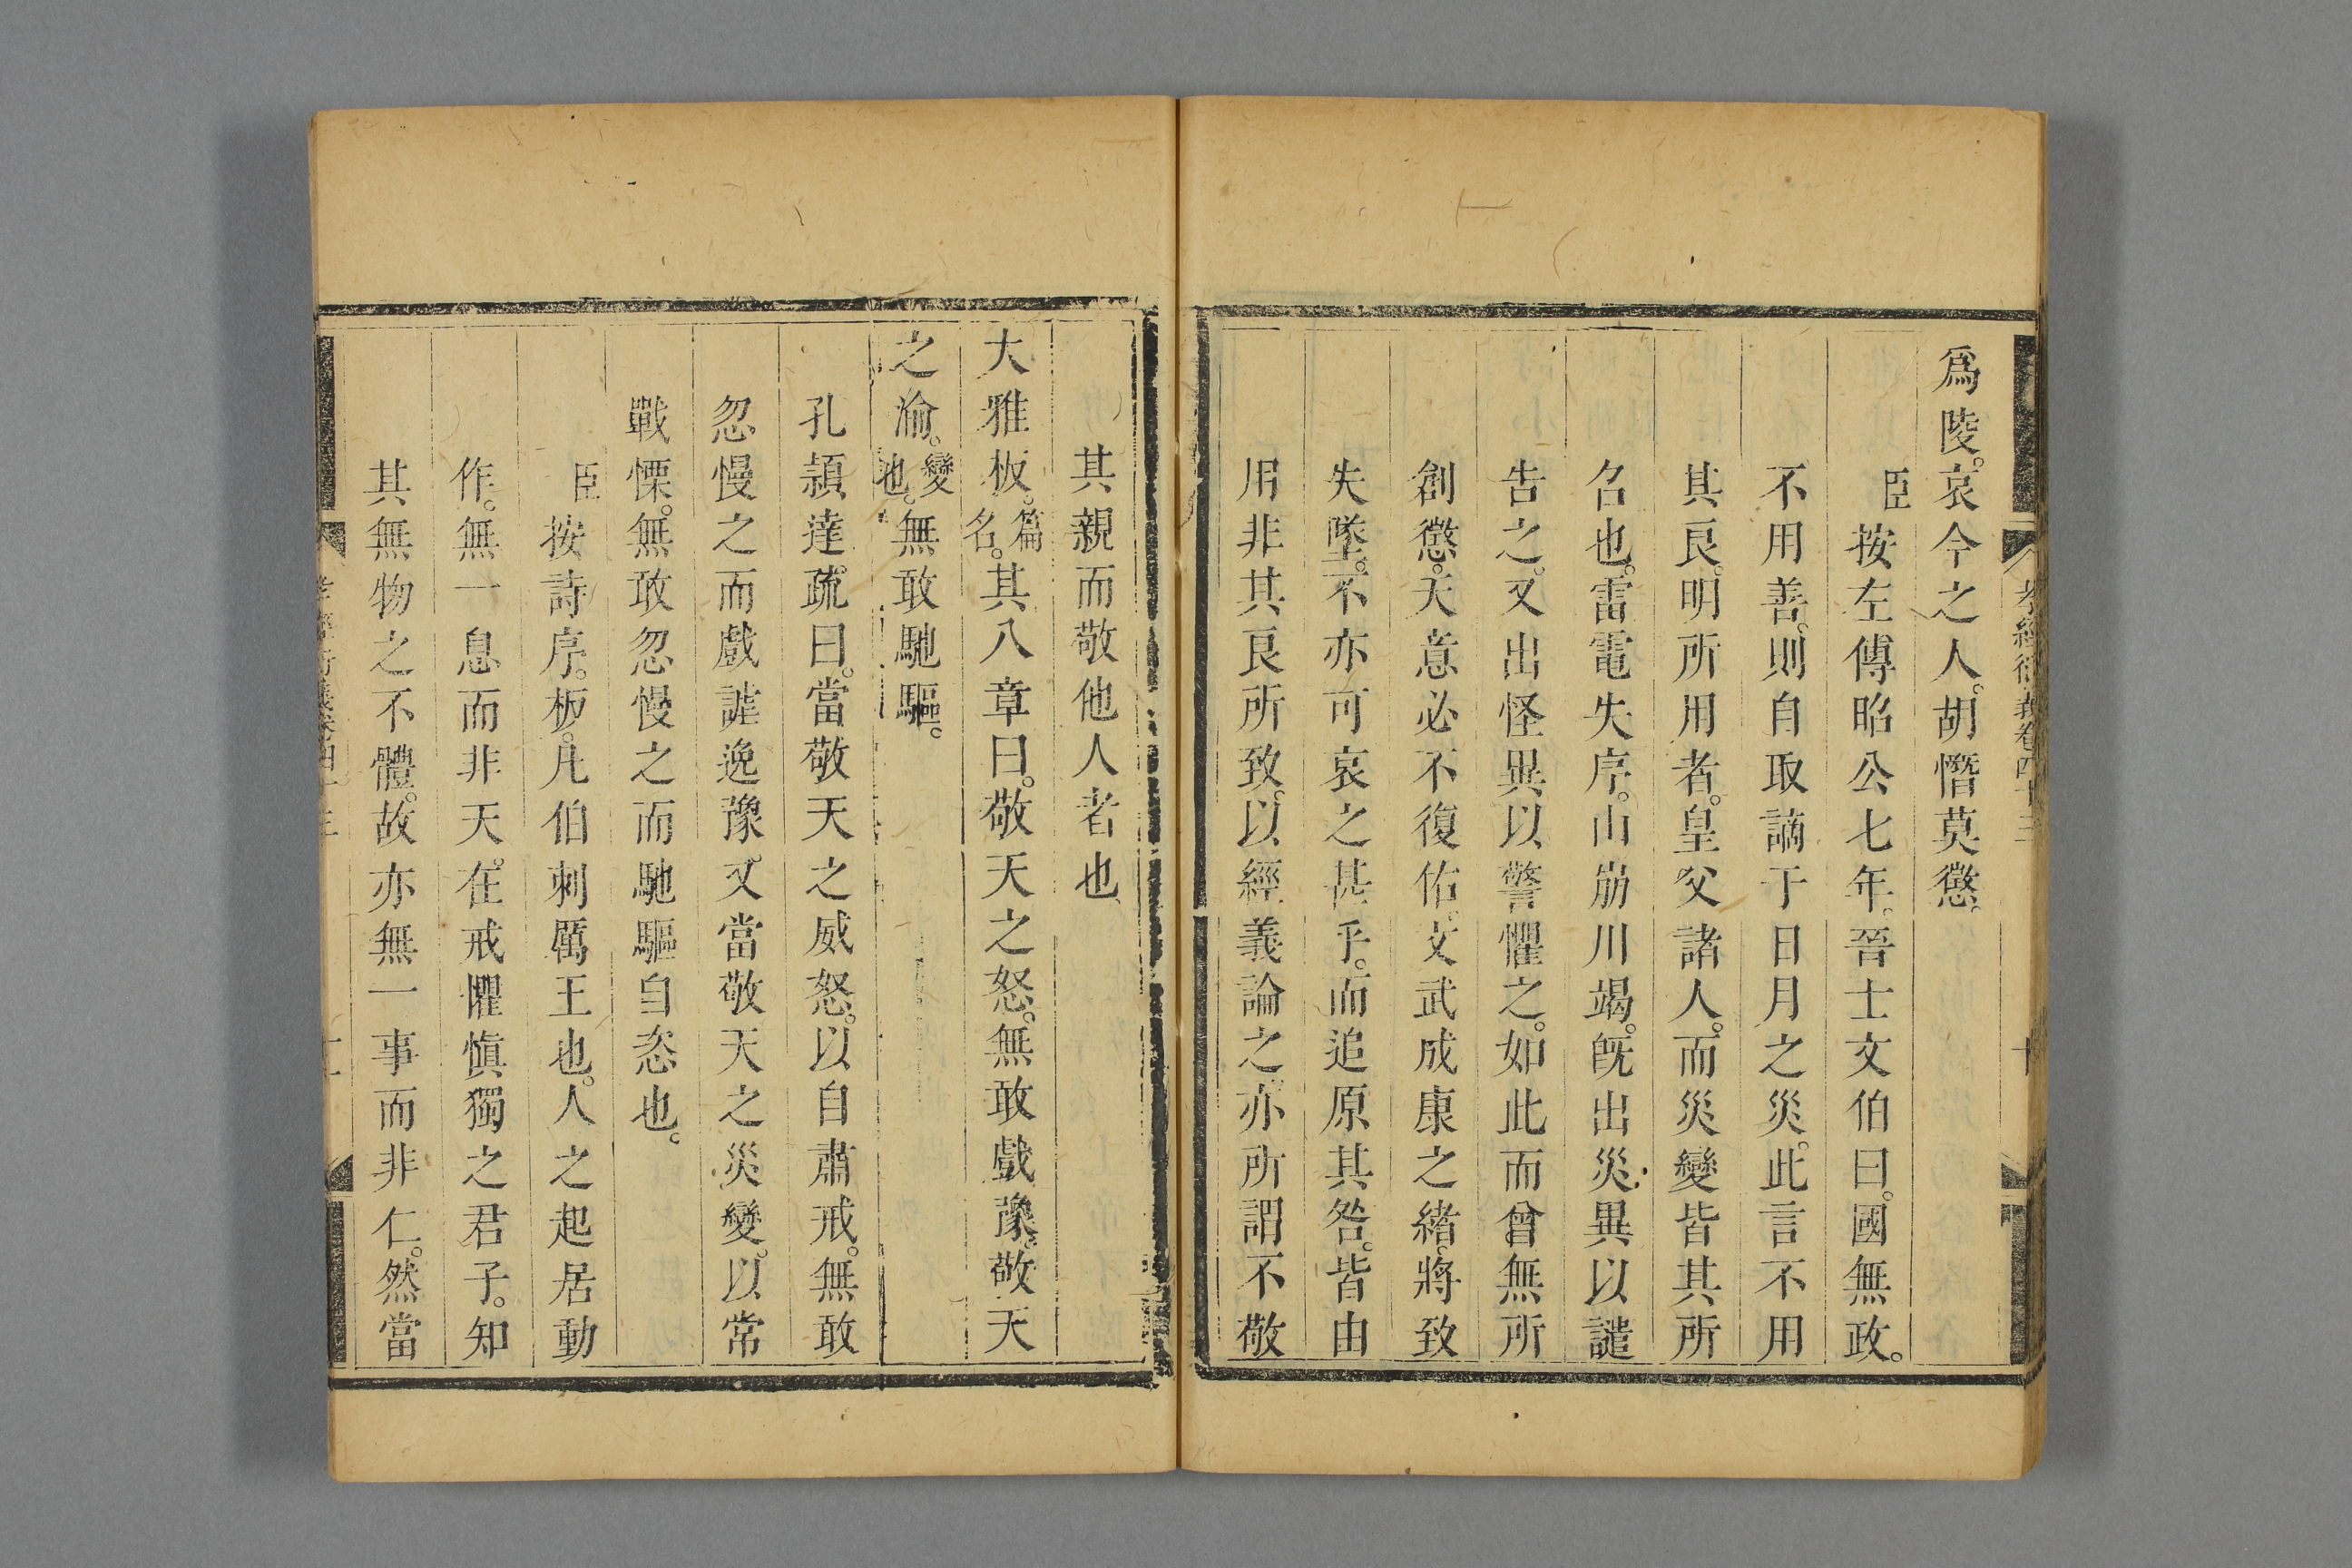 孝經衍義卷四十三 十
爲陵。哀今之人。胡憯莫懲。
臣按左傳昭公七年。晉士文伯曰。國無政。
不用善。則自取謫于日月之災。此言不用
其良。明所用者。皇父諸人。而災變皆其所
召也。雷電失序。山崩川竭。旣出災異以譴
告之。又出怪異以警懼之。如此而曾無所
創懲。天意必不復佑。文武成康之緒。將致
失墜。不亦可哀之甚乎。而追原其咎。皆由
用非其良所致。以經義論之。亦所謂不敬
其親而敬他人者也
大雅板。篇名。其八章曰。敬天之怒。無敢戲豫。敬天
之渝。變也。無敢馳驅。
孔頴達疏曰。當敬天之威怒。以自肅戒。無敢
忽慢之而戲謔逸豫。又當敬天之災變。以常
戰慄。無敢忽慢之而馳驅自恣也。
臣按詩序。板。凡伯刺厲王也。人之起居動
作。無一息而非天。在戒懼愼獨之君子。知
其無物之不體。故亦無一事而非仁。然當